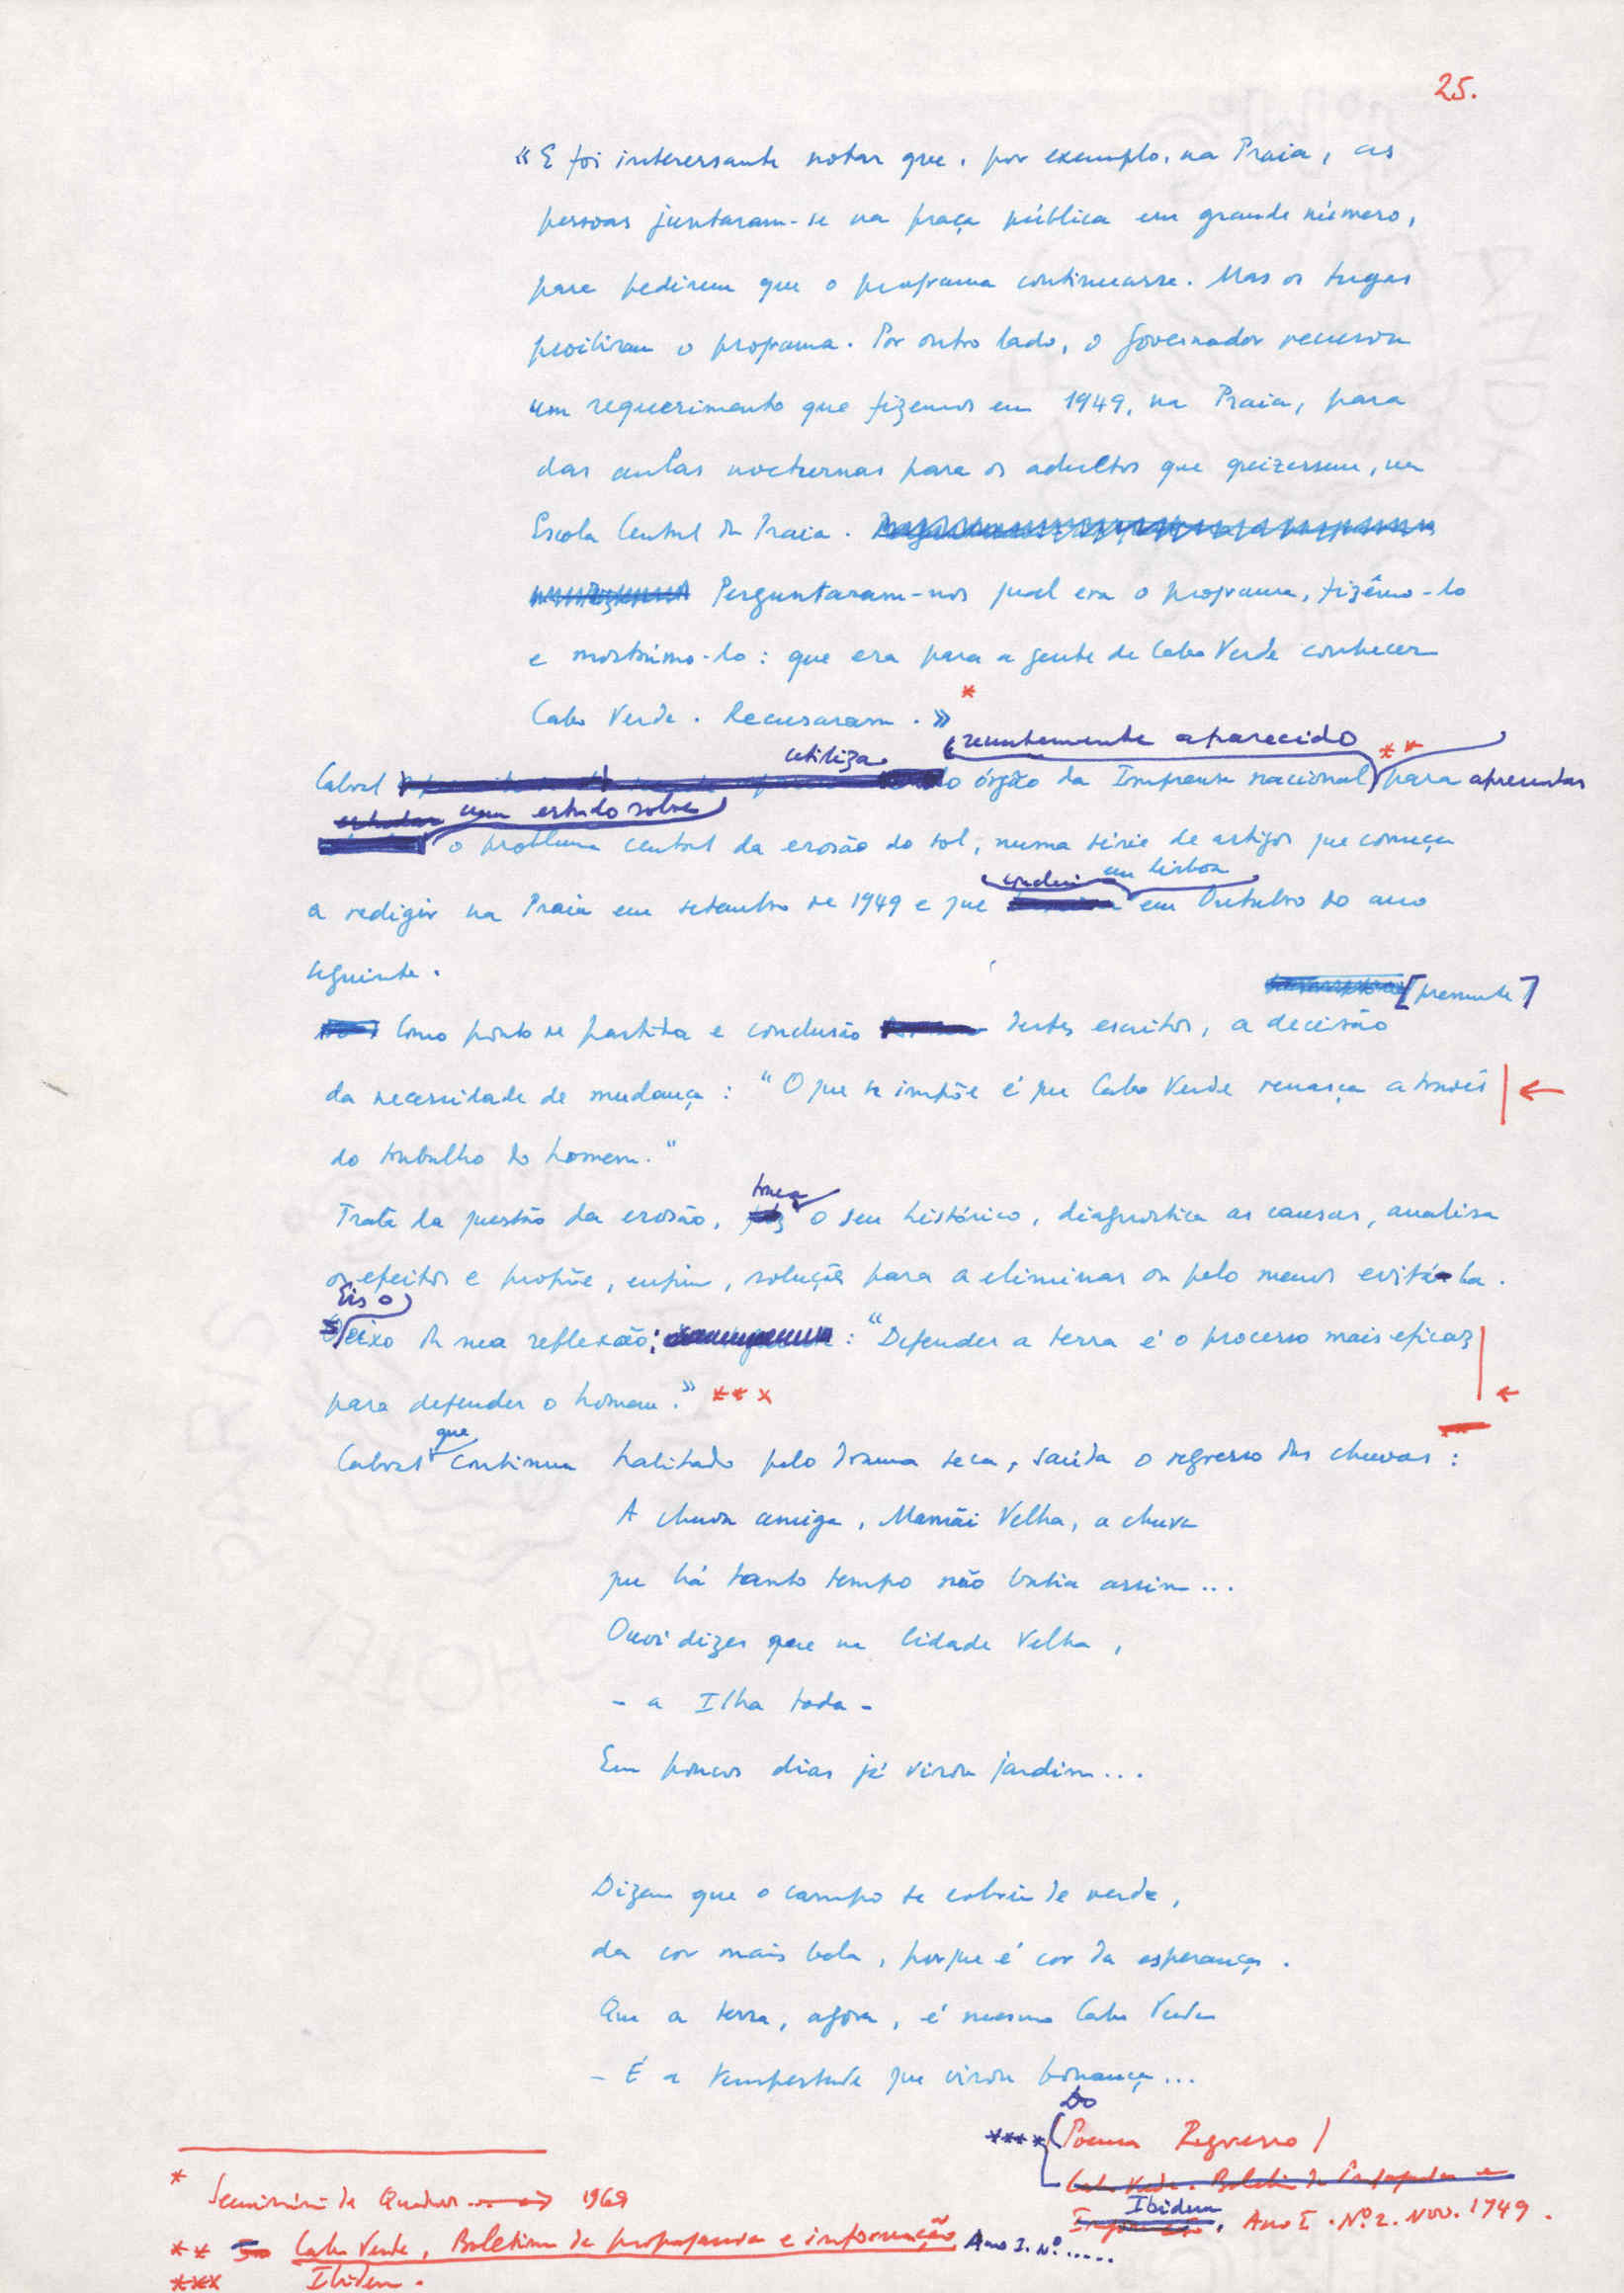 25.
« E foi interessante notar que, por exemplo, na Praia, as
pessoas juntaram-se na praça pública em grande número,
para pedirem que o programa continuasse. Mas os tugas
proibiram o programa. Por outro lado, o Governador recusou
um requerimento que fizemos em 1949, na Praia, para
dar aulas nocturnas para os adultos que quizessem, na
Escola Central da Praia.
Perguntaram-nos qual era o programa, fizêmo-lo
e mostrámo-lo: que era para a gente de Cabo Verde conhecer
Cabo Verde. Recusaram. » *
utiliza recentemente aparecido **
Cabral o órgão da Imprensa nacional para apresentar
um estudo sobre
o problema central da erosão do sol, numa série de artigos que começa
conclui em Lisboa
a redigir na Praia em setembro de 1949 e que em Outubro do ano
seguinte.
[premente]
Como ponto de partida e conclusão destes escritos, a decisão
da necessidade de mudança: "O que se impõe é que Cabo Verde renasça através ←
do trabalho do homem."
traça
Trata da questão da erosão, o seu histórico, diagnostica as causas, analisa
os efeitos e propõe, enfim, soluções para a eliminar ou pelo menos evitá-la.
Eis o
eixo da sua reflexão: "Defender a terra é o processo mais eficaz
para defender o homem." *** ←
que
Cabral continua habitado pelo drama seca, saúda o regresso das chuvas:
A chuva amiga, Mamãi Velha, a chuva
que há tanto tempo não batia assim...
Ouvi dizer que na Cidade Velha,
- a Ilha toda -
Em poucos dias já virou jardim...
Dizem que o campo se cobriu de verde,
da cor mais bela, porque é cor da esperança.
Que a terra, agora, é mesmo Cabo Verde
- É a tempestade que virou bonança...
Do
**** Poema Regresso
Cabo Verde. Boletim de Propaganda e
Informação
Ibidem, Ano I. Nº 2. Nov. 1949.
* Seminário de Quadros 1969
** Cabo Verde, Boletim de propaganda e informação, Ano I. Nº.....
*** Ibidem.